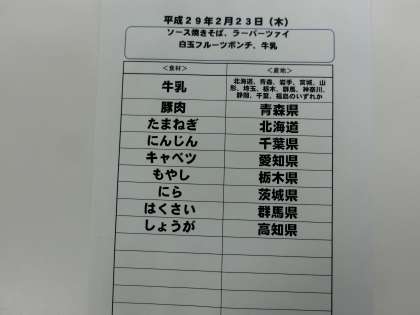 平成29年2月23日（木）
ソース焼きそば、ラーパーツァイ
白玉フルーツポンチ、牛乳
＜食材＞ ＜産地＞
牛乳 北海道、青森、岩手、宮城、山形、埼玉、栃木、群馬、神奈川、静岡、千葉、福島のいずれか
豚肉 青森県
たまねぎ 北海道
にんじん 千葉県
キャベツ 愛知県
もやし 栃木県
にら 茨城県
はくさい 群馬県
しょうが 高知県